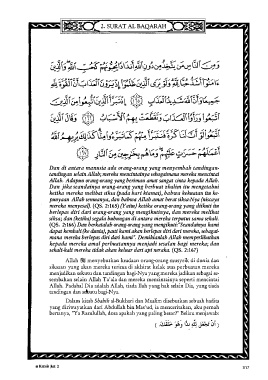 2. SURAT AL BAQARAH
وَمِنَ النَّاسِ مَن يَتَّخِذُ مِن دُونِ اللَّهِ أَندَادًا يُحِبُّونَهُمْ كَحُبِّ اللَّهِ وَالَّذِينَ
ءَامَنُوا أَشَدُّ حُبًّا لِلَّهِ وَلَوْ يَرَى الَّذِينَ ظَلَمُوا إِذْ يَرَوْنَ الْعَذَابَ أَنَّ الْقُوَّةَ لِلَّهِ
جَمِيعًا وَأَنَّ اللَّهَ شَدِيدُ الْعَذَابِ إِذْ تَبَرَّأَ الَّذِينَ اتُّبِعُوا مِنَ الَّذِينَ
اتَّبَعُوا وَرَأَوُا الْعَذَابَ وَتَقَطَّعَتْ بِهِمُ الْأَسْبَابُ وَقَالَ الَّذِينَ
اتَّبَعُوا لَوْ أَنَّ لَنَا كَرَّةً فَنَتَبَرَّأَ مِنْهُمْ كَمَا تَبَرَّءُوا مِنَّا كَذَلِكَ يُرِيهِمُ اللَّهُ
أَعْمَالَهُمْ حَسَرَاتٍ عَلَيْهِمْ وَمَا هُم بِخَارِجِينَ مِنَ النَّارِ
Dan di antara manusia ada orang-orang yang menyembah tandingan-
tandingan selain Allah; mereka mencintainya sebagaimana mereka mencintai
Allah. Adapun orang-orang yang beriman amat sangat cinta kepada Allah.
Dan jika seandainya orang-orang yang berbuat zhalim itu mengetahui
ketika mereka melihat siksa (pada hari kiamat), bahwa kekuatan itu ke-
punyaan Allah semuanya, dan bahwa Allah amat berat siksa-Nya (niscaya
mereka menyesal). (QS. 2:165) (Yaitu) ketika orang-orang yang diikuti itu
berlepas diri dari orang-orang yang mengikutinya, dan mereka melihat
siksa; dan (ketika) segala hubungan di antara mereka terputus sama sekali.
(QS. 2:166) Dan berkatalah orang-orang yang mengikuti: "Seandainya kami
dapat kembali (ke dunia), pasti kami akan berlepas diri dari mereka, sebagai-
mana mereka berlepas diri dari kami". Demikianlah Allah memperlihatkan
kepada mereka amal perbuatannya menjadi sesalan bagi mereka; dan
sekali-kali mereka tidak akan keluar dari api neraka. (QS. 2:167)
Allah menyebutkan keadaan orang-orang musyrik di dunia dan
siksaan yang akan mereka terima di akhirat kelak atas perbuatan mereka
menjadikan sekutu dan tandingan bagi-Nya yang mereka jadikan sebagai se-
sembahan selain Allah Ta'ala dan mereka mencintainya seperti mencintai
Allah. Padahal Dia adalah Allah, tiada Ilah yang hak selain Dia, yang tiada
tandingan dan sekutu bagi-Nya.
Dalam kitab Shahih al-Bukhari dan Muslim disebutkan sebuah hadits
yang diriwayatkan dari Abdullah bin Mas'ud, ia menceritakan, aku pernah
bertanya, "Ya Rasulullah, dosa apakah yang paling besar?" Beliau menjawab:
( أَنْ تَجْعَلَ لِلَّهِ نِدًّا وَهُوَ خَلَقَكَ )
317